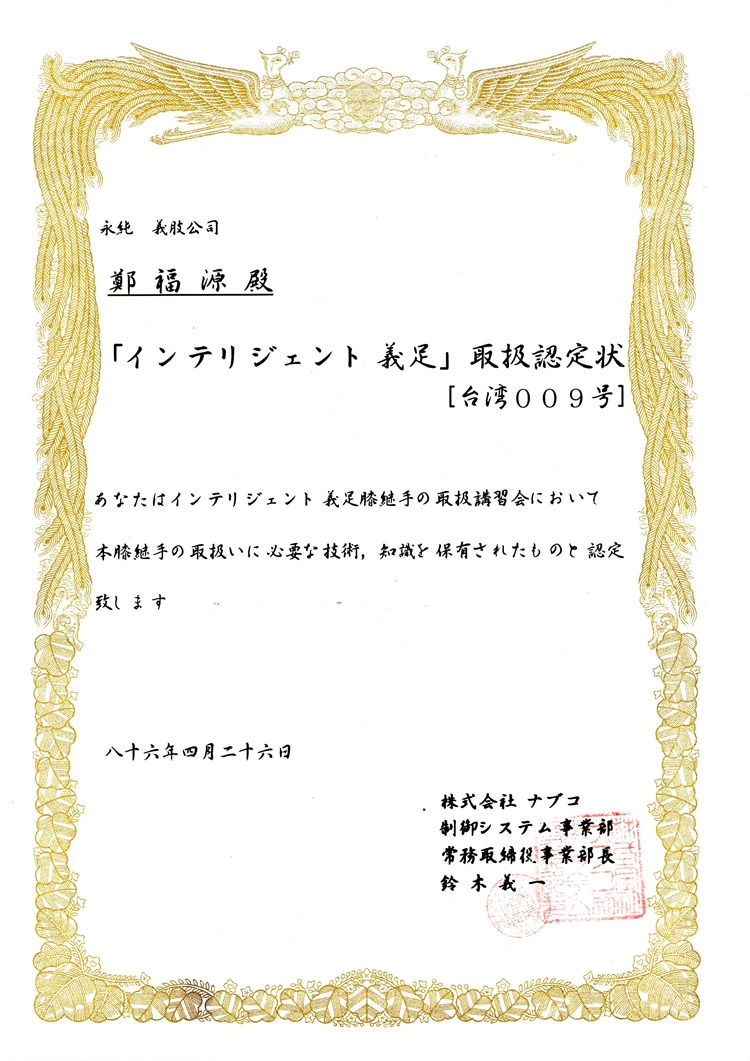 永純 義肢公司
鄭福源殿
「インテリジェント義足」取扱認定状
[台湾００９号]
あなたはインテリジェント義足膝継手の取扱講習会において
本膝継手の取扱いに必要な技術，知識を保有されたものと認定
致します
八十六年四月二十六日
株式会社 ナブコ
制御システム事業部
常務取締役事業部長
鈴木義一